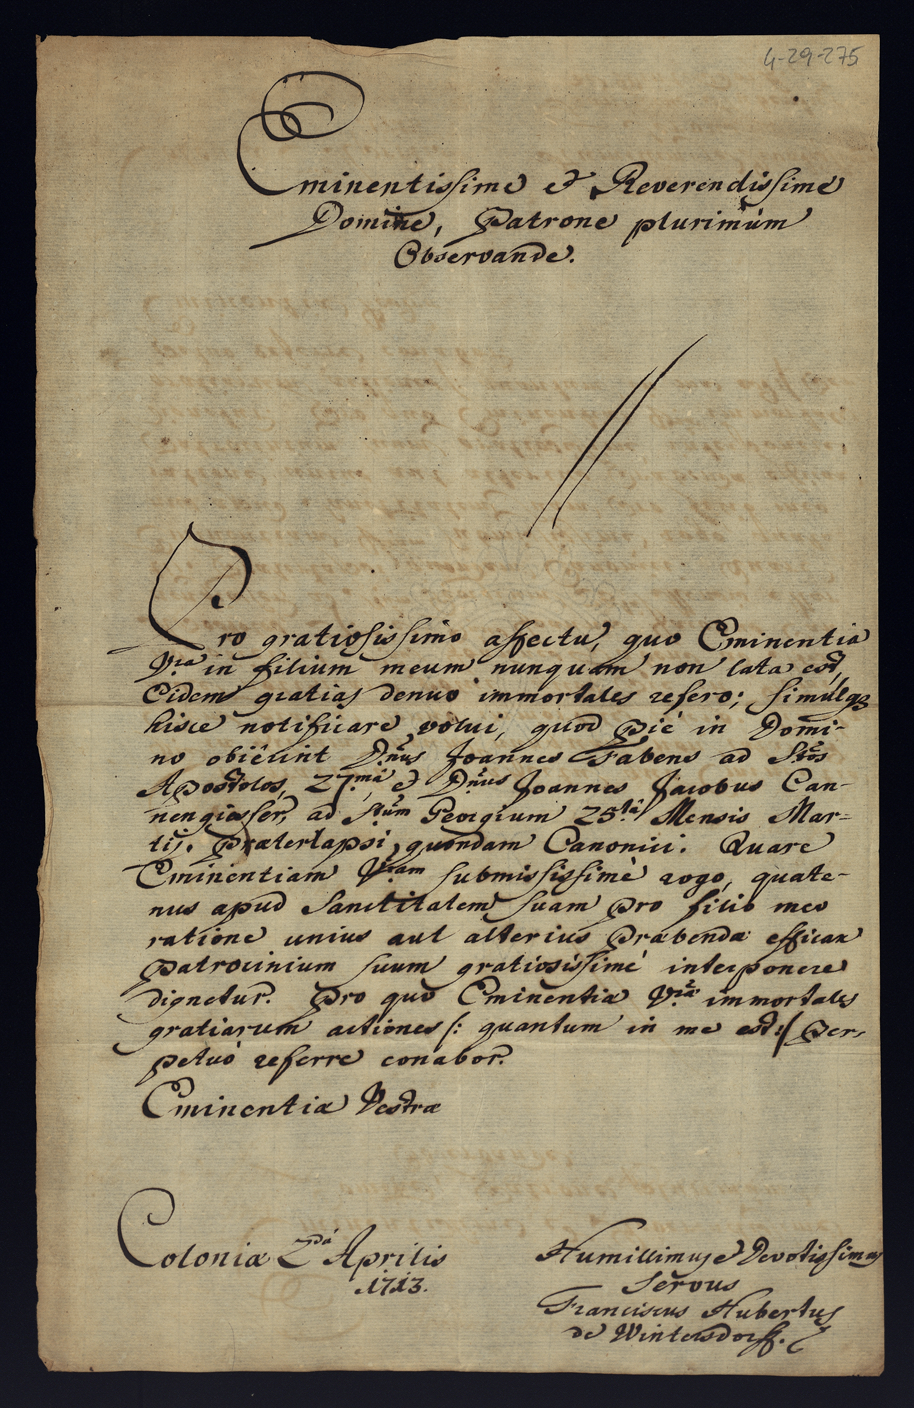 4-29-275
Eminentissime et Reverendissime
Domine, Patrone plurimùm
Observande.
Pro gratiosissimo affectu, quo Eminentia
Vra in filium meum nunquam non lata est,
Eidem gratias denuo immortales refero; simulq3
hisce notificare volui, quod piè in Domi-
no obierint Dnus Joannes Fabens ad Stos
Apostolos, 27ma, et Dnus Joannes Jacobus Can-
nengiesser, ad Stum Georgium 25ta Mensis Mar-
tij. præterlapsi, quondam Canonici. Quare
Eminentiam Vram submississimè rogo, quate-
nus apud Sanctitatem suam pro filio meo
ratione unius aut alterius Præbendæ efficax
patrocinium suum gratiosissimè interponere
dignetur. Pro quo Eminentiæ Vræ immortales
gratiarum actiones /: quantum in me est :/ per-
petuò referre conabor.
Eminentiæ Vestræ
Coloniæ 2da Aprilis
1713.
Humillimus et Devotissimus
Servus
Franciscus Hubertus
de Wintersdorff.